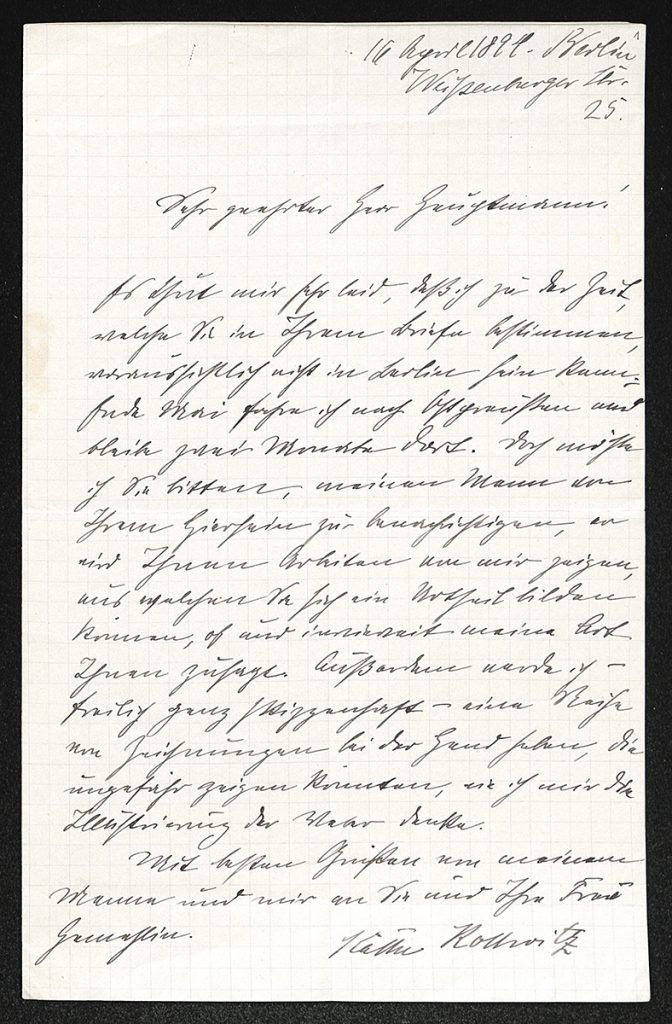 16 April 1894. Berlin
Weißenburger Str.
25.
Sehr geehrter Herr Hauptmann!
Es thut mir sehr leid, daß ich zu der Zeit,
welche Sie in Ihrem Briefe bestimmen,
voraussichtlich nicht in Berlin sein kann.
Ende Mai fahre ich nach Ostpreußen und
bleibe zwei Monate dort. Doch möchte
ich Sie bitten, meinen Mann von
Ihrem Hiersein zu benachrichtigen, er
wird Ihnen Arbeiten von mir zeigen,
aus welchen Sie sich ein Urtheil bilden
können, ob und inwieweit meine Art
Ihnen zusagt. Außerdem werde ich –
freilich ganz skizzenhaft – eine Reihe
von Zeichnungen bei der Hand haben, die
ungefähr zeigen könnten, wie ich mir die
Illustrierung der Weber denke.
Mit besten Grüßen von meinem
Manne und mir an Sie und Ihre Frau
Gemahlin.
Käthe Kollwitz